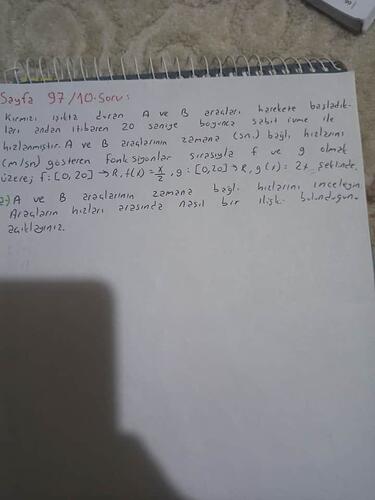 Sayfa 97/10.Soru:
Kırmızı ışıkta duran A ve B araçları harekete başladık-
ları andan itibaren 20 saniye boyunca sabit ivme ile
hızlanmıştır. A ve B araçlarının zamana (sn.) bağlı hızlarını
(m/sn) gösteren fonksiyonlar sırasıyla f ve g olmak
üzere; f:[0,20]→R, f(x)=x/2, g:[0,20]→R, g(x)=2x şeklinde.
a) A ve B araçlarının zamana bağlı hızlarını inceleyin.
Araçların hızları arasında nasıl bir ilişki bulunduğunu
açıklayınız.